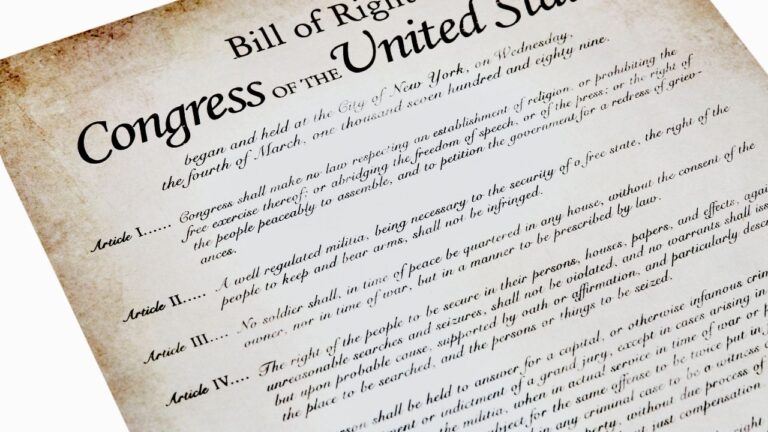 Bill of Right
Congress OF THE United Sta
began and held at the City of New York, on Wednesday,
the fourth of March, one thousand seven hundred and eighty nine.
Article I...... Congress shall make no law respecting an establishment of religion, or prohibiting the
free exercise thereof; or abridging the freedom of speech, or of the press; or the right of
the people peaceably to assemble, and to petition the government for a redress of griev-
ances.
Article II...... A well regulated militia, being necessary to the security of a free state, the right of the
people to keep and bear arms, shall not be infringed.
Article III.... No soldier shall, in time of peace be quartered in any house, without the consent of the
owner, nor in time of war, but in a manner to be prescribed by law.
Article IV.... The right of the people to be secure in their persons, houses, papers, and effects, agai
unreasonable searches and seizures, shall not be violated, and no warrants shall iss
but upon probable cause, supported by oath or affirmation, and particularly desc
the place to be searched, and the persons or things to be seized.
erson shall be held to answer for a capital, or otherwise infamous crim
ment or indictment of a grand jury, except in cases arising in
the militia, when in actual service in time of war or p
subject for the same offense to be twice put in j
in any criminal case to be a witness a
perty, without due process of
just compensation
right